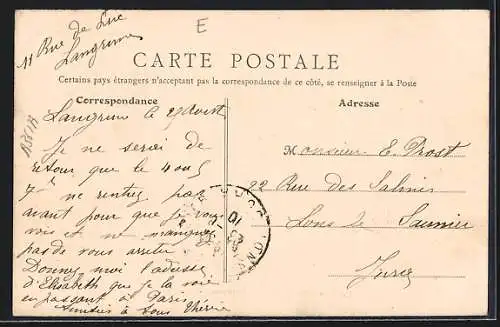 11 Rue de Luc
Langrune
E
CARTE POSTALE
Certains pays étrangers n'acceptant pas la correspondance de ce côté, se renseigner à la Poste
Correspondance
Adresse
Langrune le 29 Aout
Je ne serai de
retour que le 4 ou 5
ne rentrez pas
avant pour que je vous
vois et ne manquez
pas de vous arreter
Donnez moi l'adresse
d'Elisabeth que je la voie
en passant à Paris
à tous
Monsieur E. Prost
22 Rue des Salines
Lons le Saunier
Jura